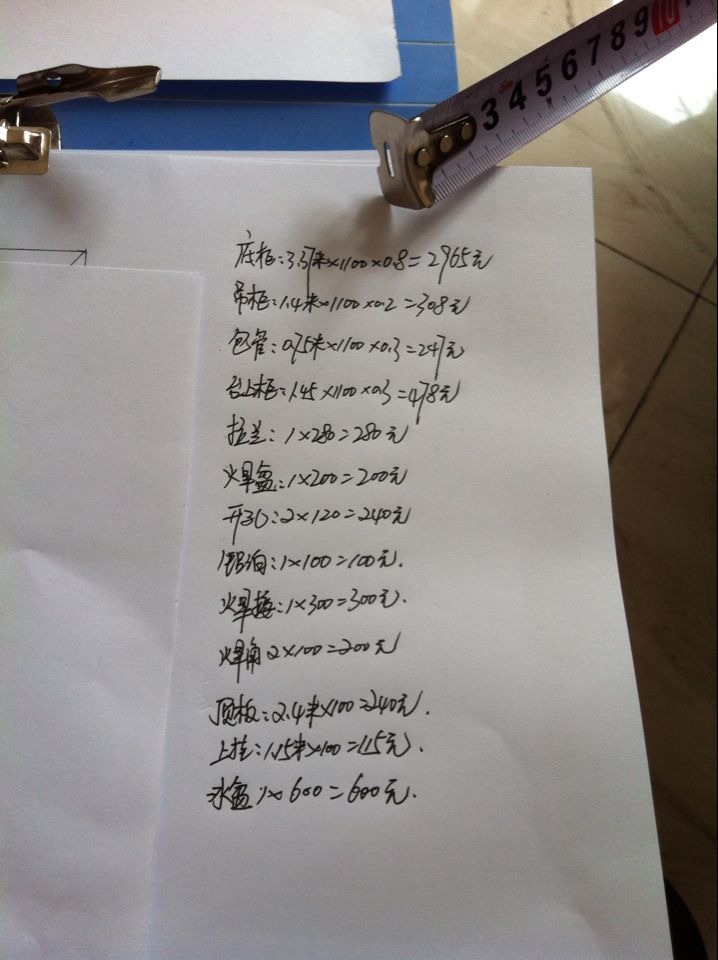 3 4 5 6 7 8 9 10
底柜:3.37米×1100×0.8=2965元
吊柜:1.4米×1100×0.2=308元
包管:0.75米×1100×0.3=247元
台上柜:1.45×1100×0.3=478元
拉兰:1×280=280元
焊盆:1×200=200元
开孔:2×120=240元
铝泊:1×100=100元.
焊接:1×300=300元.
焊角2×100=200元
顶板:2.4米×100=240元.
上挂:1.15米×100=115元.
水盆:1×600=600元.